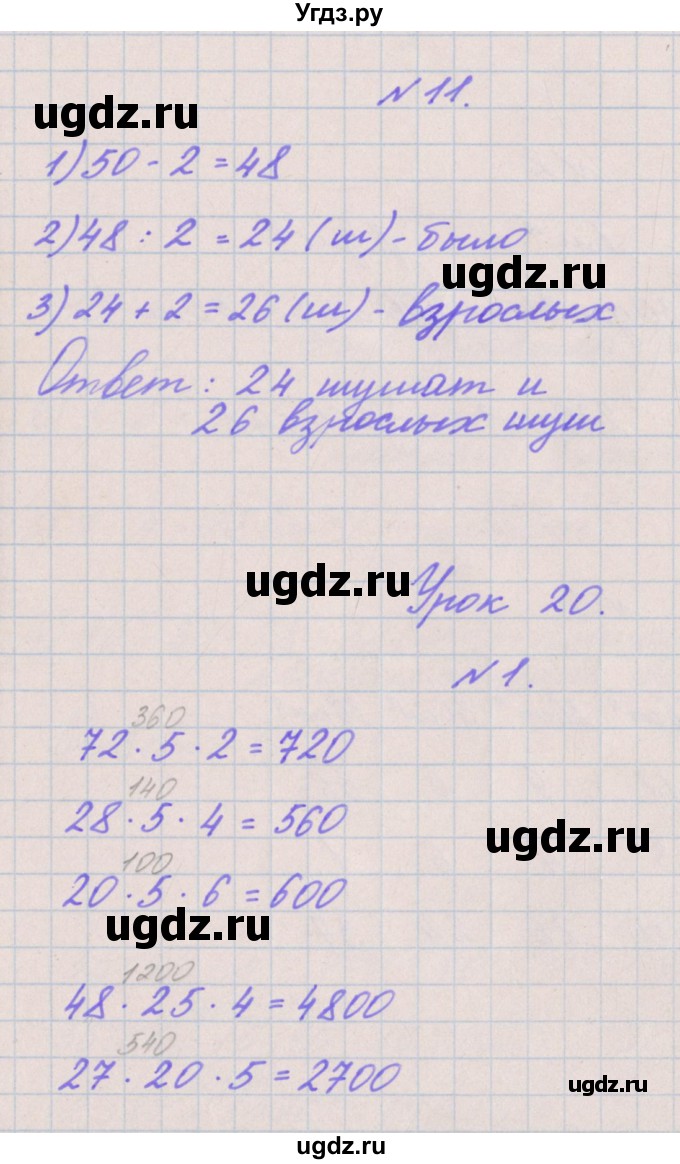 Угдз.ру
№ 11.
ugdz.ru
1) 50 - 2 = 48
2) 48 : 2 = 24 (ш) - было
ugdz.ru
3) 24 + 2 = 26 (ш) - взрослых
Ответ: 24 шушат и
26 взрослых шуш
ugdz.ru
Урок 20.
№ 1.
360
72 · 5 · 2 = 720
140
28 · 5 · 4 = 560
ugdz.ru
100
20 · 5 · 6 = 600
ugdz.ru
1200
48 · 25 · 4 = 4800
540
27 · 20 · 5 = 2700
ugdz.ru
ugdz.ru